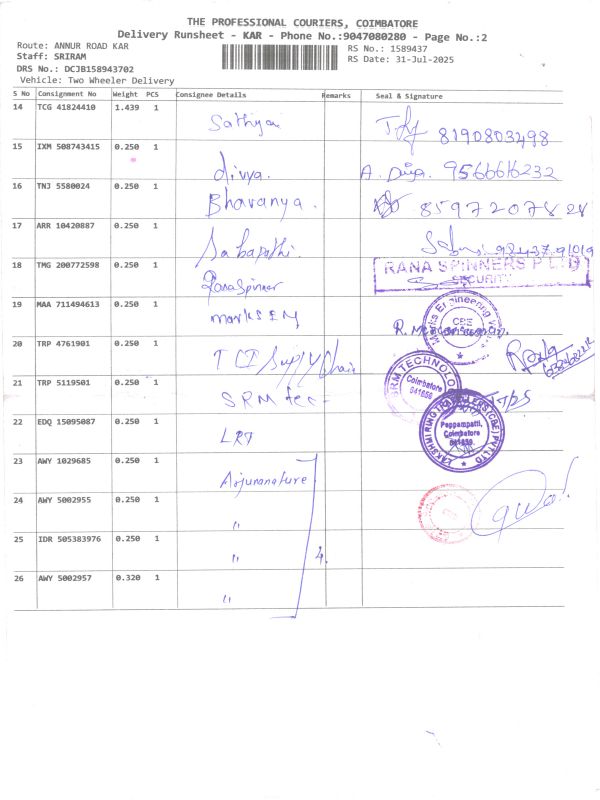 THE PROFESSIONAL COURIERS, COIMBATORE
Delivery Runsheet - KAR - Phone No.:9047080280 - Page No.:2
Route: ANNUR ROAD KAR
RS No.: 1589437
Staff: SRIRAM
RS Date: 31-Jul-2025
DRS No.: DCJB158943702
Vehicle: Two Wheeler Delivery
S No Consignment No Weight PCS Consignee Details Remarks Seal & Signature
14 TCG 41824410 1.439 1 Sathiya 8190803498
15 IXM 508743415 0.250 1 divya. A. Divya. 9566616232
16 TNJ 5580024 0.250 1 Bhavanya. 8597207828
17 ARR 10420887 0.250 1 Sabapathi.
18 TMG 200772598 0.250 1 RanaSpinner RANA SPINNERS P LTD
SECURITY
19 MAA 711494613 0.250 1 marks EN Marks Engineering CBE
20 TRP 4761901 0.250 1 TCI Supply Chain
21 TRP 5119501 0.250 1 SRM tec SRM TECHNOLO Coimbatore 641659
22 EDQ 15095087 0.250 1 LRT LAKSHMI RING TRAVELLERS (CBE) PVT LTD
Peppampatti,
Coimbatore
641659.
23 AWY 1029685 0.250 1 Arjunanature
24 AWY 5002955 0.250 1 "
25 IDR 505383976 0.250 1 " 4.
26 AWY 5002957 0.320 1 "